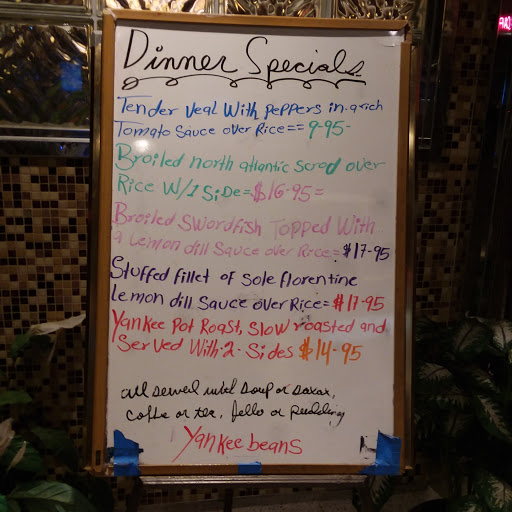 Dinner Specials
Tender veal With peppers in a rich
Tomato Sauce over Rice== 9-95-
Broiled north atlantic Scrod over
Rice W/1 Side=$16-95=
Broiled Swordfish Topped With
a Lemon dill Sauce over Rice=$17-95
Stuffed fillet of Sole florentine
Lemon dill Sauce over Rice=$17-95
Yankee Pot Roast, Slow roasted and
Served With-2- Sides $14-95
all served with Soup or
coffe or tea, Jello or Pudding
Yankee beans